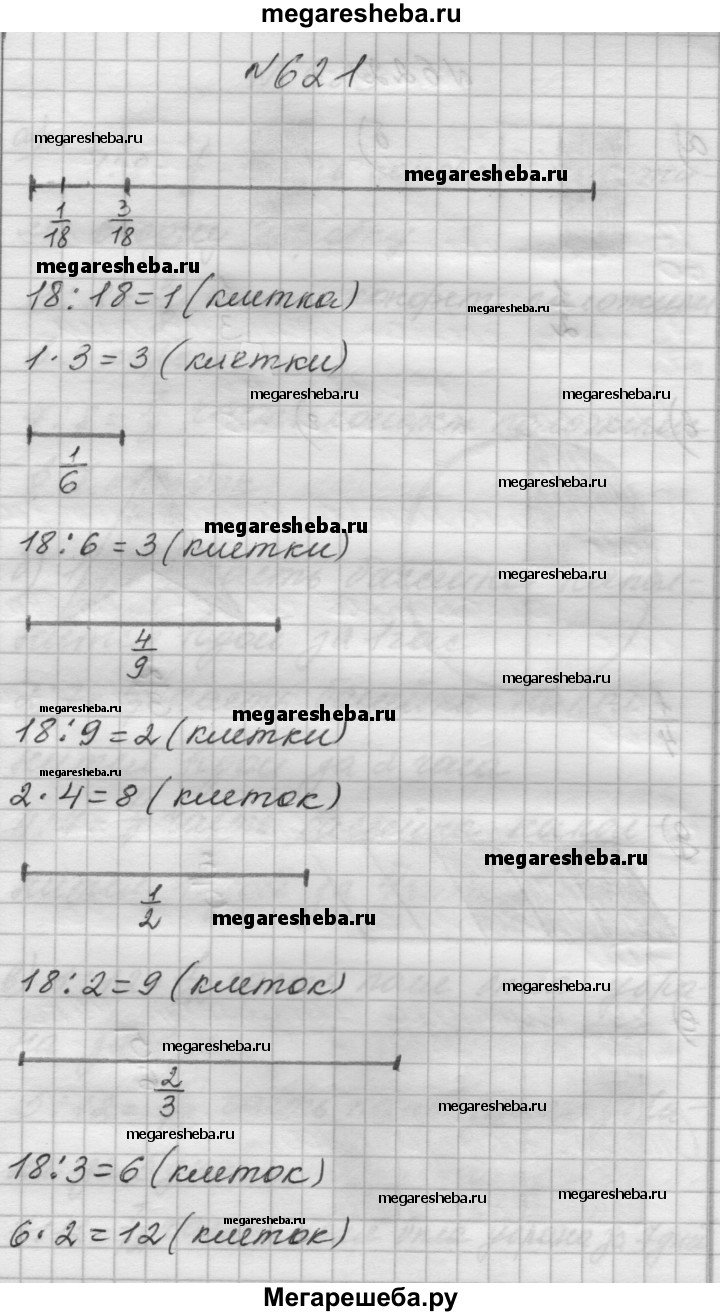 megaresheba.ru
№621
megaresheba.ru
megaresheba.ru
1/18 3/18
megaresheba.ru
18:18=1 (клетка)
megaresheba.ru
1·3=3 (клетки)
megaresheba.ru megaresheba.ru
1/6
megaresheba.ru
megaresheba.ru
18:6=3 (клетки)
megaresheba.ru
4/9
megaresheba.ru
megaresheba.ru megaresheba.ru
18:9=2 (клетки)
megaresheba.ru
2·4=8 (клеток)
megaresheba.ru
1/2
megaresheba.ru
18:2=9 (клеток)
megaresheba.ru
megaresheba.ru
2/3
megaresheba.ru
megaresheba.ru
18:3=6 (клеток)
megaresheba.ru megaresheba.ru
megaresheba.ru
6·2=12 (клеток)
Мегарешеба.ру